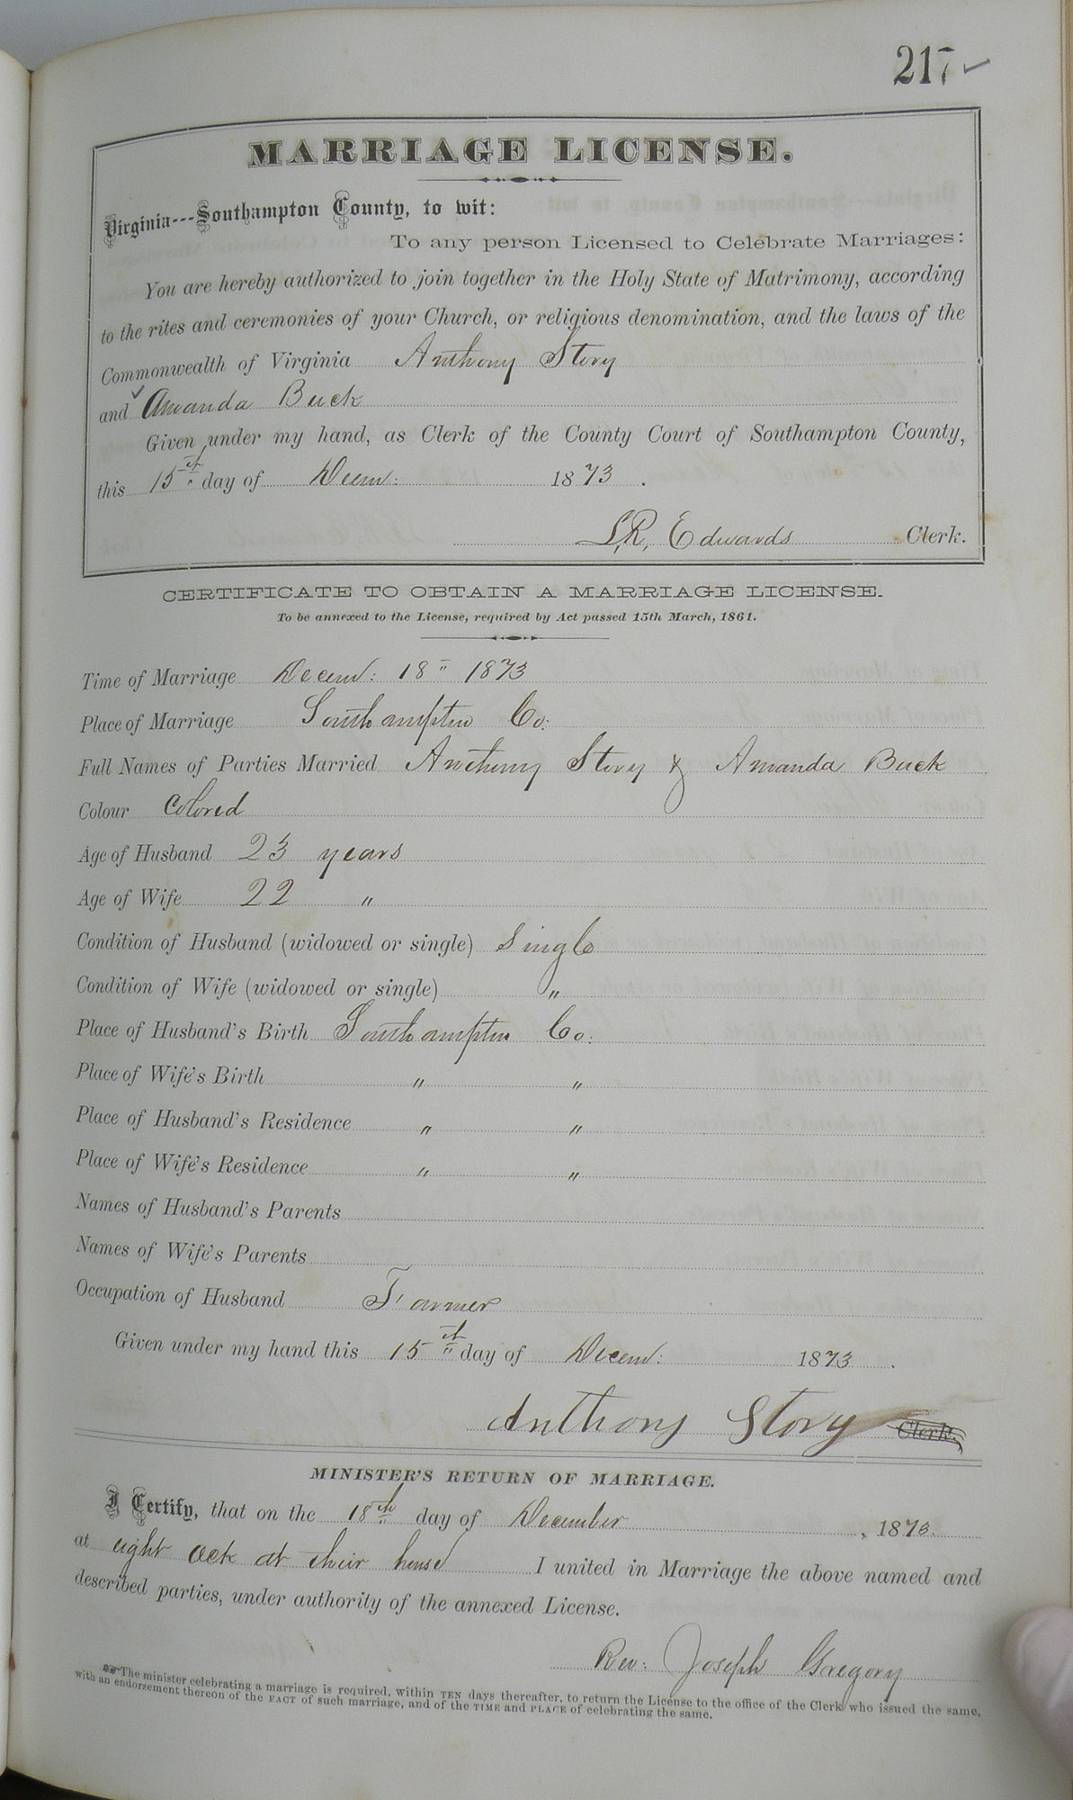 217 ✓
MARRIAGE LICENSE.
Virginia---Southampton County, to wit:
To any person Licensed to Celebrate Marriages:
You are hereby authorized to join together in the Holy State of Matrimony, according
to the rites and ceremonies of your Church, or religious denomination, and the laws of the
Commonwealth of Virginia Anthony Story
and Amanda Buck
Given under my hand, as Clerk of the County Court of Southampton County,
this 15th day of Decem: 1873.
L.R. Edwards Clerk.
CERTIFICATE TO OBTAIN A MARRIAGE LICENSE.
To be annexed to the License, required by Act passed 15th March, 1861.
Time of Marriage Decem: 18" 1873
Place of Marriage Southampton Co:
Full Names of Parties Married Anthony Story & Amanda Buck
Colour Colored
Age of Husband 23 years
Age of Wife 22 "
Condition of Husband (widowed or single) Single
Condition of Wife (widowed or single) "
Place of Husband's Birth Southampton Co:
Place of Wife's Birth " "
Place of Husband's Residence " "
Place of Wife's Residence " "
Names of Husband's Parents
Names of Wife's Parents
Occupation of Husband Farmer
Given under my hand this 15th day of Decem: 1873.
Anthony Story Clerk.
MINISTER'S RETURN OF MARRIAGE.
I Certify, that on the 18th day of December, 1873.
at eight ock at their house I united in Marriage the above named and
described parties, under authority of the annexed License.
Rev: Joseph Gregory
The minister celebrating a marriage is required, within TEN days thereafter, to return the License to the office of the Clerk who issued the same,
with an endorsement thereon of the FACT of such marriage, and of the TIME and PLACE of celebrating the same.